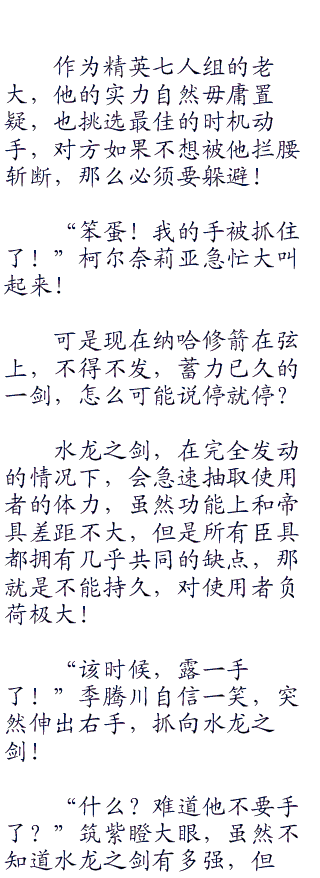 作为精英七人组的老
大，他的实力自然毋庸置
疑，也挑选最佳的时机动
手，对方如果不想被他拦腰
斩断，那么必须要躲避！
“笨蛋！我的手被抓住
了！”柯尔奈莉亚急忙大叫
起来！
可是现在纳哈修箭在弦
上，不得不发，蓄力已久的
一剑，怎么可能说停就停？
水龙之剑，在完全发动
的情况下，会急速抽取使用
者的体力，虽然功能上和帝
具差距不大，但是所有臣具
都拥有几乎共同的缺点，那
就是不能持久，对使用者负
荷极大！
“该时候，露一手
了！”季腾川自信一笑，突
然伸出右手，抓向水龙之
剑！
“什么？难道他不要手
了？”筑紫瞪大眼，虽然不
知道水龙之剑有多强，但